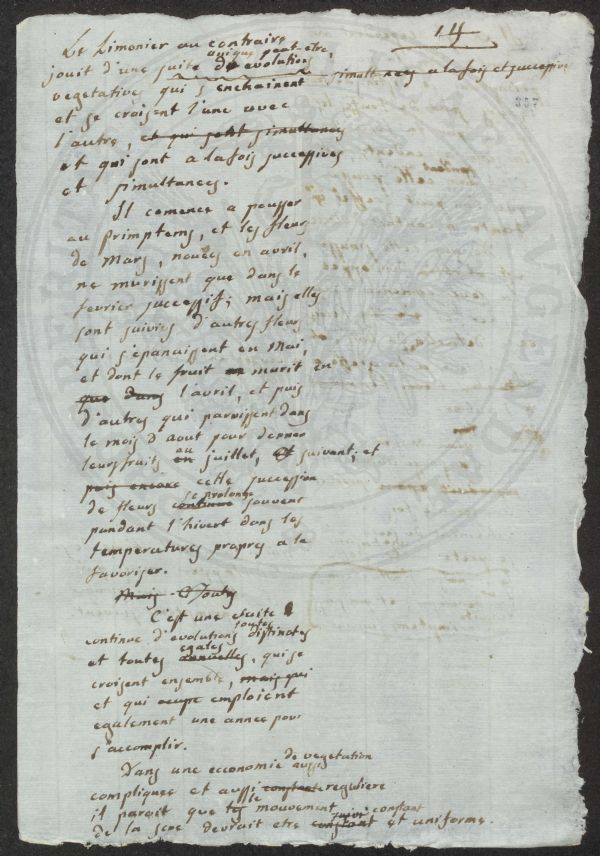 14
Le Limonier au contraire
unique peut-etre,
jouit d'une suite d'evolutions simultanees a la fois et successives
vegetatives qui s'enchainent
et se croisent l'une avec
l'autre, et qui sont simultanees
et qui sont a la fois successives
et simultanees.
337
Il comence a pousser
au primptems, et les fleurs
de Mars, nouées en avril,
ne murissent que dans le
fevrier successif; mais elles
sont suivies d'autres fleurs
qui s'épanuissent en Mai,
et dont le fruit murit en
que dans l'avril, et puis
d'autres qui paroissent dans
le mois d'aout pour donner
au
leurs fruits en juillet, et suivent; et
puis encore cette succession
se prolonge
de fleurs continue souvent
pendant l'hivert dans les
temperatures propres a le
favoriser.
Mais
C'est une suite
continue d'evolutions toutes distinctes
egales
et toutes annuelles, qui se
croisent ensemble, mais qui
et qui ocupe emploient
egalement une annee pour
s'accomplir.
de vegetation
Dans une economie aussi
compliquee et aussi constante reguliere
il parait que le mouvement
suivi constant
de la seve devrait etre constant et uniforme.